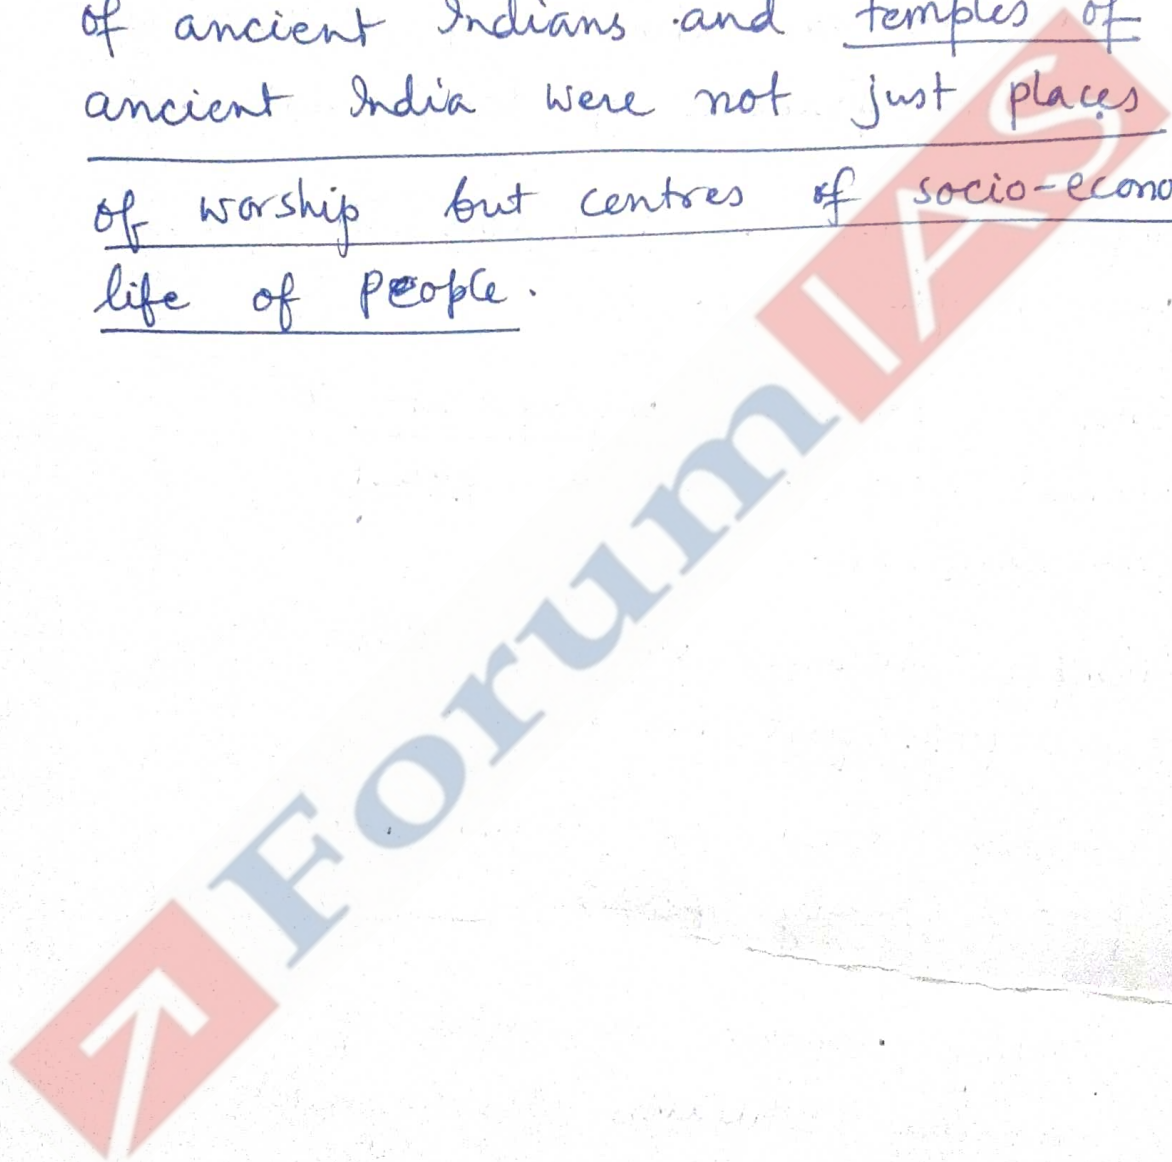 of ancient Indians and temples of
ancient India were not just places
of worship but centres of socio-econo
life of people.
Forum IAS